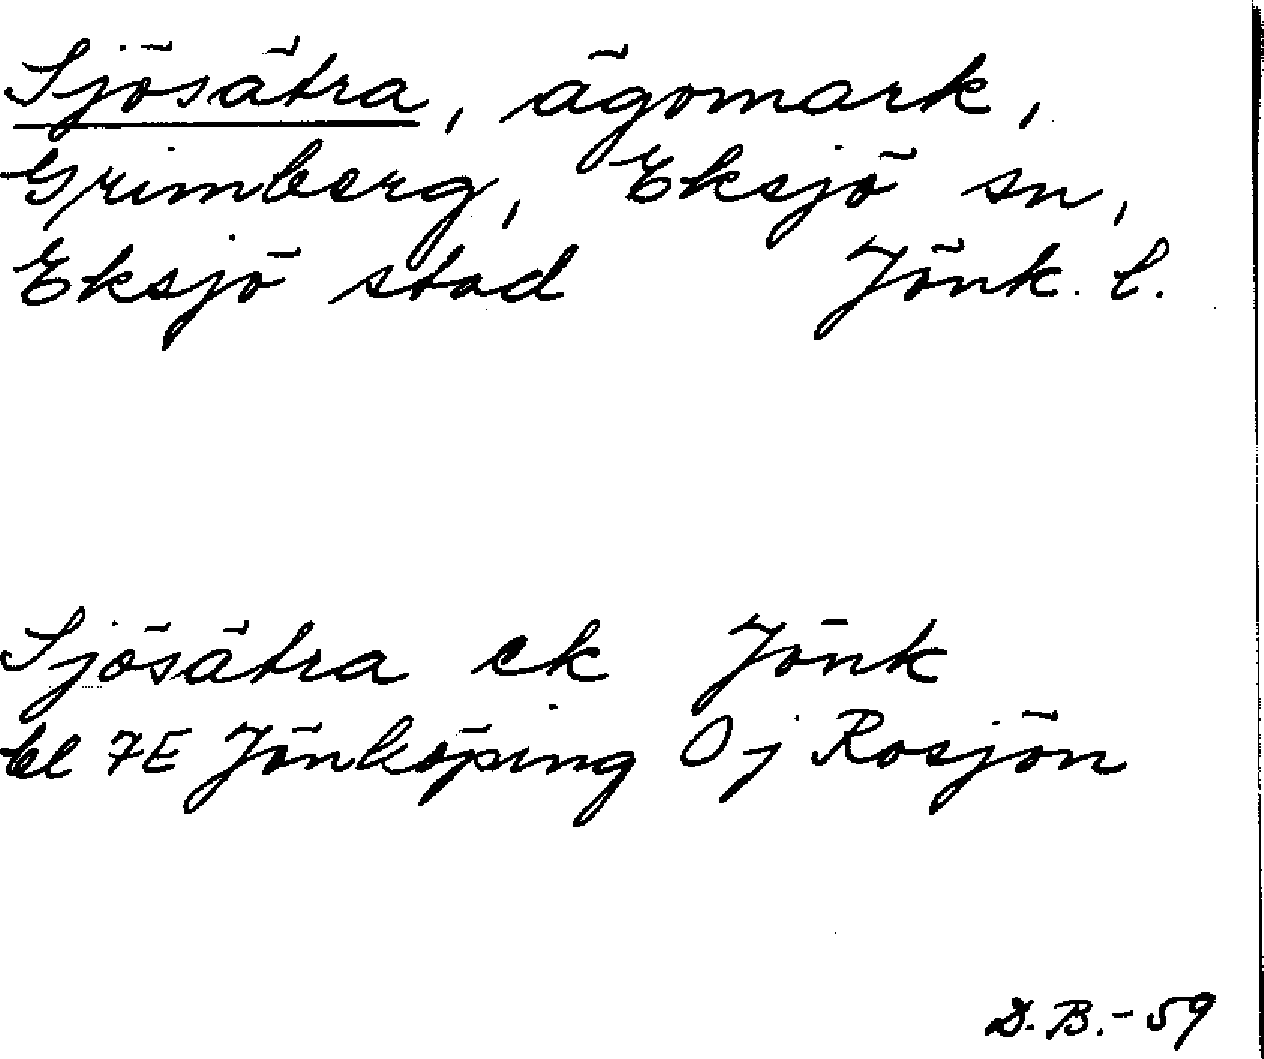 Sjösätra, ägomark,
Grimberg, Eksjö sn,
Eksjö stad Jönk. l.
Sjösätra ek Jönk
bl 7E Jönköping Oj Rosjön
D.B.-59